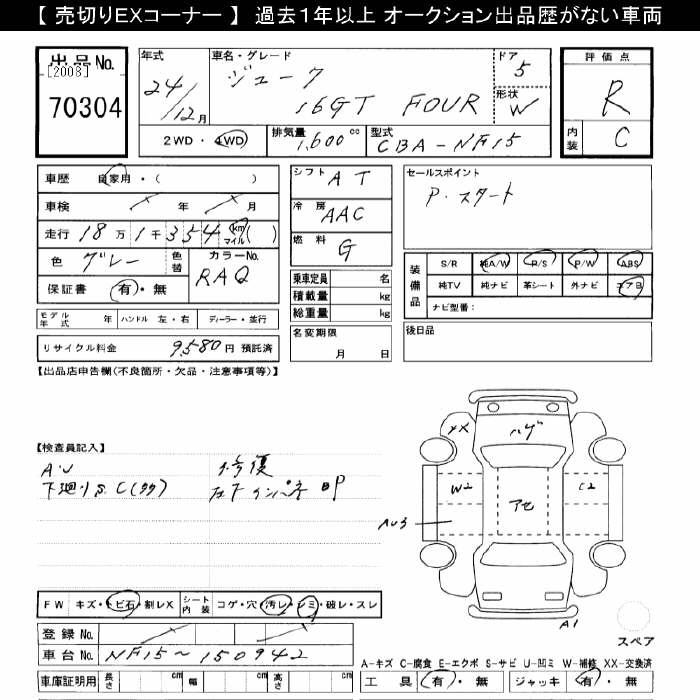 【 売切りEXコーナー 】 過去1年以上 オークション出品歴がない車両
出品No.
[2008]
70304
年式
24/12月
車名・グレード
ジューク
16GT FOUR
ドア
5
形状
W
評価点
R
内装
C
2WD・4WD
排気量
1,600 cc
型式
CBA-NF15
車歴 自家用・( )
車検 年 月
走行 18万1千354 km マイル( )
色 グレー 色替
カラーNo.
RAQ
保証書 有・無
モデル年式 年 ハンドル 左・右 ディーラー・並行
リサイクル料金 9,580円 預託済
シフト AT
冷房 AAC
燃料 G
乗車定員 名
積載量 kg
総重量 kg
名変期限
月 日
セールスポイント
P.スタート
装備品
S/R 純A/W P/S P/W ABS
純TV 純ナビ 革シート 外ナビ エアB
ナビ型番:
後日品
【出品店申告欄(不良箇所・欠品・注意事項等)】
【検査員記入】
AU 修復
下廻りS.C(多)
XX
ハゲ
W2
アセ
C2
AU3
A1
スペア
FW キズ・トビ石・割レX シート内装 コゲ・穴・汚レ・シミ・破レ・スレ
登録No.
車台No. NF15~150942
車庫証明用 長さ cm 幅 cm 高さ cm
A-キズ C-腐食 E-エクボ S-サビ U-凹ミ W-補修 XX-交換済
工具 有・無 ジャッキ 有・無